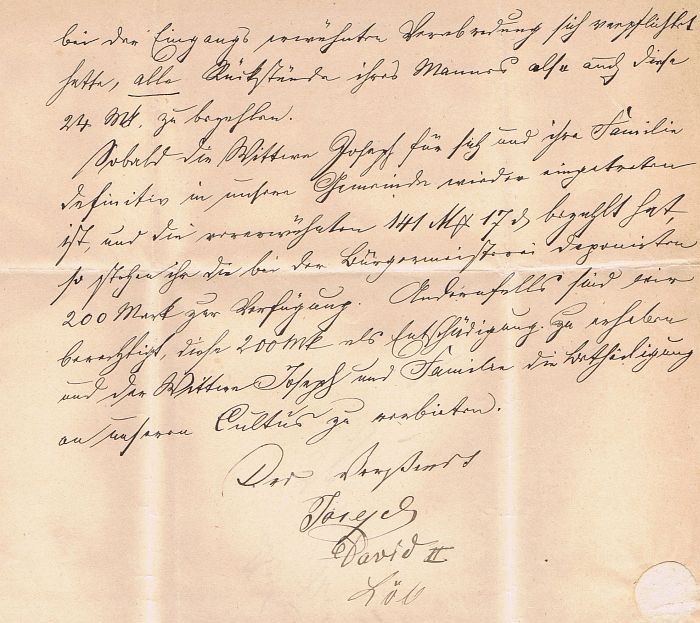 bei der Eingangs erwähnten Verabredung sich verpflichtet
hatte, alle Rückstände ihres Mannes also auch diese
24 Mk. zu bezahlen.
Sobald die Wittwe Joseph für sich und ihre Familie
definitiv in unsere Gemeinde wieder eingetreten
ist, und die vorerwähnten 141 M 17 d bezahlt hat
so stehen ihr die bei der Bürgermeisterei deponirten
200 Mark zur Verfügung. Andernfalls sind wir
berechtigt, diese 200 Mk als Entschädigung zu erheben
und der Wittwe Joseph und Familie die Betheiligung
an unserem Cultus zu verbieten.
Der Vorstand
Joseph
David II
Löb